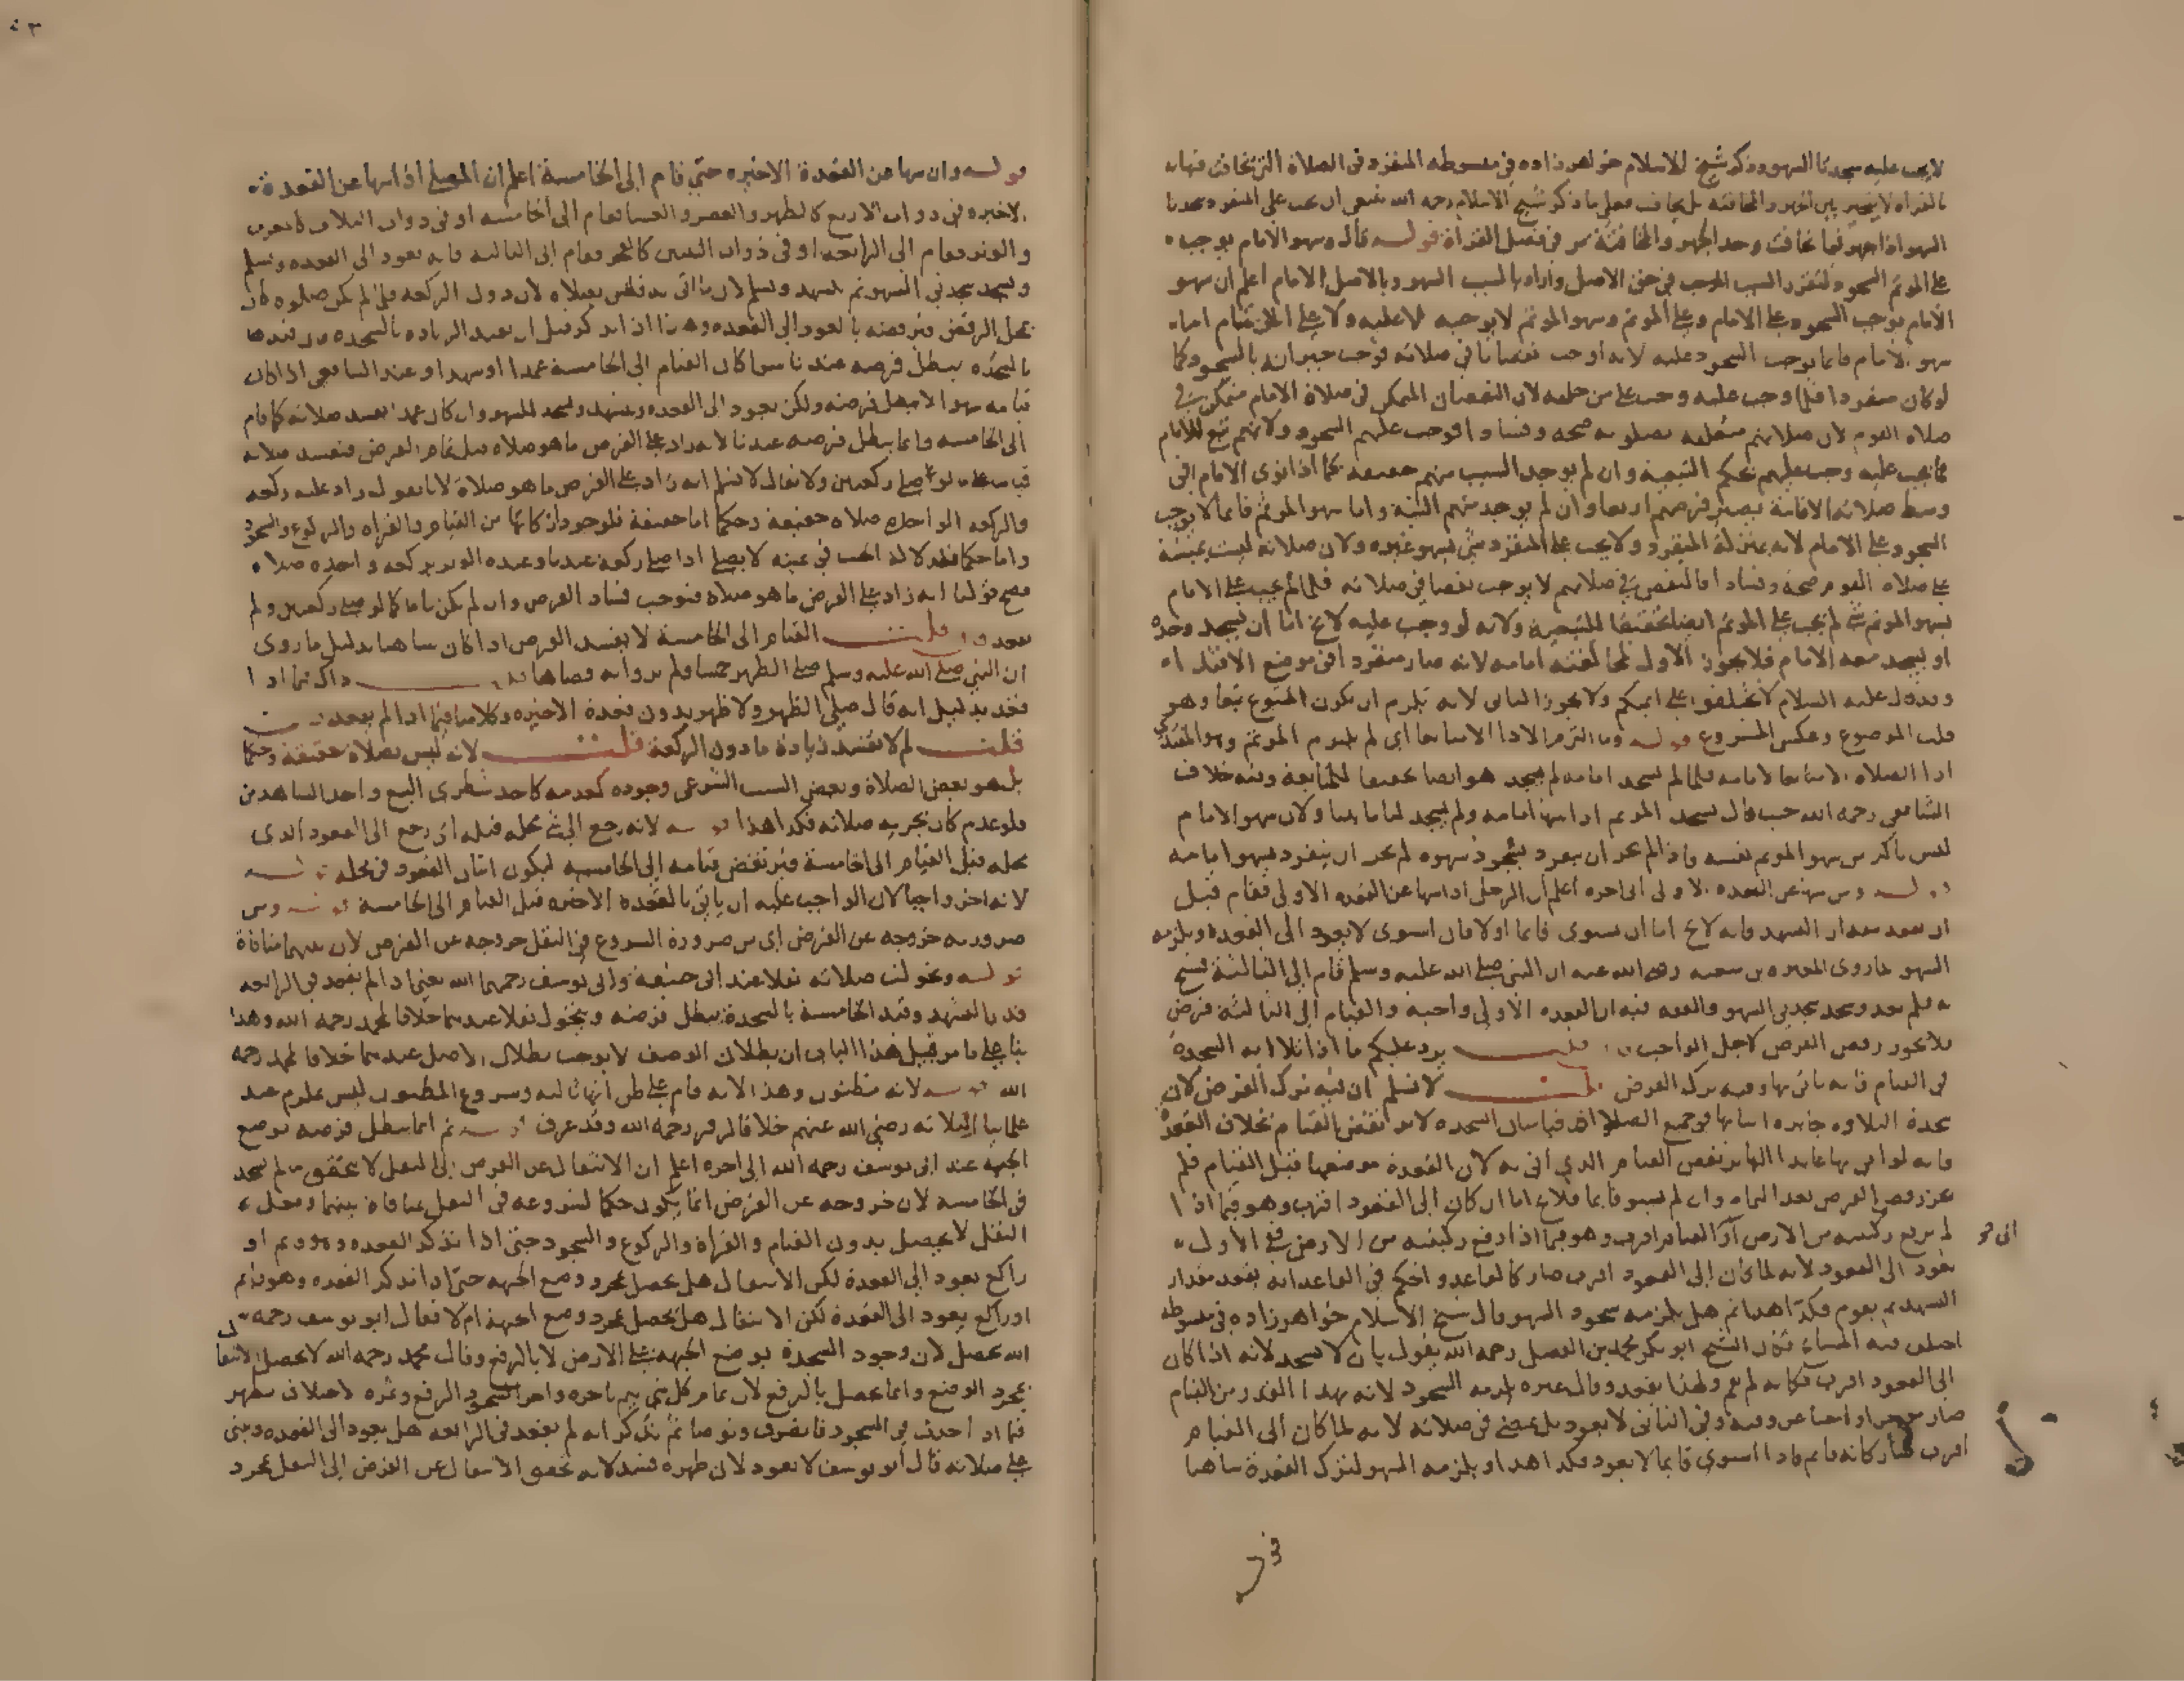 لا يجب عليه سجدتا السهو وذكر شيخ الاسلام خواهر زاده في مبسوطه المنفرد في الصلاة التي يخافت فيها
السهو اذا جهر فيما يخافت وحد الجهر والمخافتة مر في فصل القراة قوله قال وسهو الامام يوجب
على المؤتم السجود لتقرر السبب الموجب في حق الاصل واراد بالسبب السهو وبالاصل الامام اعلم ان سهو
الامام يوجب السجود على الامام وعلى المؤتم وسهو المؤتم لا يوجبه لا عليه ولا على
سهو الامام فانما يوجب السجود عليه لانه اوجب نقصانا في صلاته فوجب جبرانه بالسجود كما
لو كان منفردا فلما وجب عليه وجب على من خلفه لان النقصان المتمكن في صلاة الامام متمكن في
صلاة القوم لان صلاتهم متعلقه بصلوته صحه وفسادا فوجب عليهم السجود ولانهم تبع للامام
فما يجب عليه وجب عليهم بحكم التبعية وان لم يوجد السبب منهم حقيقه كما اذا نوى الامام في
وسط صلاته الاقامة يصير فرضهم اربعا وان لم يوجد منهم النية واما سهو المؤتم فانما لا يوجب
السجود على الامام لانه بمنزلة المنفرد ولا يجب على المنفرد شي بسهو غيره ولان صلاته ليست مبنية
على صلاة القوم صحة وفسادا فالنقص في صلاتهم لا يوجب نقصا في صلاته فلما لم يجب على الامام
بسهو المؤتم شي لم يجب على المؤتم ايضا تحقيقا للتبعية ولانه لو وجب عليه لا يخ اما ان يسجد وحده
او يسجد معه الامام فلا يجوز الاول لمخالفته امامه لانه صار منفردا في موضع الاقتداء
وقد قال عليه السلام لا تختلفوا على ايمتكم ولا يجوز الثاني لانه يلزم ان يكون المتبوع تبعا وهو
قلب الموضوع وعكس المشروع قوله وما التزم الادا الا متابعا اي لم يلتزم المؤتم وهو المقتدي
ادا الصلاه الا متابعا لامامه فلما لم يسجد امامه لم يسجد هو ايضا تحقيقا للمتابعة وفيه خلاف
الشافعي رحمه الله حيث قال يسجد المؤتم اذا سها امامه ولم يسجد لما بينا ولان سهو الامام
ليس باكثر من سهو المؤتم نفسه واذا لم يجز ان ينفرد بسجود سهوه لم يجز ان ينفرد بسهو امامه
قوله ومن سها عن القعده الاولى الى اخره اعلم ان الرجل اذا سها عن القعده الاولى فقام قبل
ان يقعد مقدار التشهد فانه لا يخ اما ان يستوى قايما او لا فان استوى لا يعود الى القعدة ويلزمه
السهو لما روى المغيره بن شعبه رضي الله عنه ان النبي صلى الله عليه وسلم قام الى الثالثة فسبح
به فلم يعد وسجد سجدتي السهو والفقه فيه ان القعده الاولى واجبه والقيام الى الثالثة فرض
فلا يجوز رفض الفرض لاجل الواجب فان قلت يرد عليكم ما اذا تلا ايه السجدة
في القيام فانه ياتي بها وفيه ترك الفرض قلت لا نسلم ان فيه ترك الفرض لان
سجدة التلاوه جايزه
فانه لو اتى بها عايدا اليها يرتفض القيام الذي اتى به لان القعدة موضعها قبل القيام فلم
يجز رفض الفرض بعد اتمامه وان لم يستو قايما فلا يخ اما ان كان الى القعود اقرب وهو فيما اذا
لم يرفع ركبتيه من الارض او الى القيام اقرب وهو فيما اذا رفع ركبتيه من الارض ففي الاول
يعود الى القعود لانه لما كان الى القعود اقرب صار كالقاعد والحكم في القاعد انه يقعد مقدار
التشهد ثم يقوم فكذا هذا ثم هل يلزمه سجود السهو قال شيخ الاسلام خواهر زاده في مبسوطه
اختلف فيه المشايخ فكان الشيخ ابو بكر محمد بن الفضل رحمه الله يقول بان لا يسجد لانه اذا كان
الى القعود اقرب فكانه لم يقم ولهذا يقعد وقال غيره يلزمه السجود لانه بهذا القدر من القيام
صار مؤخرا واجبا عن وقته وفي الثاني لا يعود بل يمضي في صلاته لانه لما كان الى القيام
اقرب صار كانه قايم واذا استوى قايما لا يعود فكذا هذا ويلزمه السهو لترك القعدة ساهيا
قوله
قوله وان سها عن القعدة الاخيره حتى قام الى الخامسة اعلم ان المصلي اذا سها عن القعدة
الاخيره في ذوات الاربع كالظهر والعصر والعشا فقام الى الخامسه او في ذوات الثلاث كالمغرب
والوتر فقام الى الرابعه او في ذوات الثنتين كالفجر فقام الى الثالثه فانه يعود الى القعده ويسلم
ويسجد سجدتي السهو ثم يتشهد ويسلم لان ما اتى به ليس بصلاه لان دون الركعه
بمحل الرفض فيرفضه بالعود الى القعده وهذا اذا تذكر قبل ان يقيد الزياده بالسجده وان قيدها
بالسجده يبطل فرضه عندنا سوا كان القيام الى الخامسة عمدا او سهوا وعند الشافعي اذا كان
قيامه سهوا لا يبطل فرضه ولكن يعود الى القعده ويتشهد ويسجد للسهو وان كان عمدا تفسد صلاته كما قام
الى الخامسه وانما يبطل فرضه عندنا لانه زاد على الفرض ما هو صلاه قبل تمام الفرض فتفسد صلاته
قياسا على ما لو صلى ركعتين ولا يقال لا نسلم انه زاد على الفرض ما هو صلاة لانا نقول انه زاد عليه ركعه
والركعه الواحده صلاه حقيقه وحكما اما حقيقة فلوجود اركانها من القيام والقراه والركوع والسجود
فصح قولنا انه زاد على الفرض ما هو صلاة فتوجب فساد الفرض وان لم يكن تاما كما لو صلى ركعتين ولم
يقعد فان قلت القيام الى الخامسة لا يفسد الفرض اذا كان ساهيا بدليل ما روى
ان النبي صلى الله عليه وسلم صلى الظهر خمسا ولم يرو انه قضاها قلت ذاك فيما اذا
قعد بدليل انه قال صلى الظهر ولا ظهر بدون قعدة الاخيره وكلامنا فيما اذا لم يقعد فان
قلت لم لا تفسد زيادة ما دون الركعة قلت لانه ليس بصلاة حقيقة وحكما
بل هو بعض الصلاة وبعض السبب الشرعي وجوده كعدمه كاحد شطري البيع واحد الشاهدين
ولو عدم كان تجزيه صلاته فكذا هذا قوله لانه رجع الى شي محله قبله اي رجع الى القعود الذي
محله قبل القيام الى الخامسة فيرتفض قيامه الى الخامسه ليكون اتيان القعود في محله قوله
لانه اخر واجبا لان الواجب عليه ان ياتي بالقعدة الاخيره قبل القيام الى الخامسة قوله ومن
ضرورته خروجه عن الفرض اي من ضرورة الشروع في النفل خروجه عن الفرض لان بينهما منافاة
قوله وتحولت صلاته نفلا عند ابي حنيفة وابي يوسف رحمهما الله يعني اذا لم يقعد في الرابعه
قدر التشهد وقيد الخامسة بالسجدة يبطل فرضه ويتحول نفلا عندهما خلافا لمحمد رحمه الله وهذا
بنا على ما مر قبيل هذا الباب ان بطلان الوصف لا يوجب بطلان الاصل عندهما خلافا لمحمد رحمه
الله قوله لانه مظنون وهذا لانه قام على ظن انها ثالثه وشروع المظنون ليس بملزم عند
علمائنا الثلاثه رضي الله عنهم خلافا لزفر رحمه الله وقد عرف قوله ثم انما يبطل فرضه بوضع
الجبهه عند ابي يوسف رحمه الله الى اخره اعلم ان الانتقال عن الفرض الى النفل لا يتحقق ما لم يسجد
في الخامسه لان خروجه عن الفرض انما يكون حكما لشروعه في النفل لمنافاة بينهما
النفل لا يحصل بدون القيام والقراة والركوع والسجود حتى اذا تذكر القعده وهو قايم او
راكع يعود الى القعدة لكن الانتقال هل يحصل بمجرد وضع الجبهه حتى اذا تذكر القعده وهو قايم
او راكع يعود الى القعدة لكن الانتقال هل يحصل بمجرد وضع الجبهة ام لا فقال ابو يوسف رحمه
الله يحصل لان وجود السجدة بوضع الجبهة على الارض لا بالرفع وقال محمد رحمه الله لا يحصل الانتقال
بمجرد الوضع وانما يحصل بالرفع لان تمام كل شي باخره واخر السجود الرفع وثمره الاختلاف تظهر
فيما اذا احدث في السجود فانصرف وتوضا ثم تذكر انه لم يقعد في الرابعه هل يعود الى القعده ويبني
على صلاته قال ابو يوسف لا يعود لان ظهره فسد لانه تحقق الانتقال عن الفرض الى النفل بمجرد